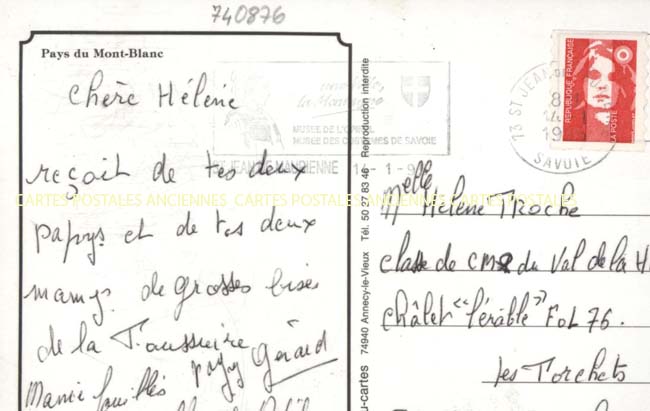 740876
Pays du Mont-Blanc
Chère Hélène
reçoit de tes deux
papys et de tes deux
mamys de grosses bises
de la Toussuire
papy Gérard
Mamie
MUSEE DE L'OPINEL
MUSEE DES COSTUMES DE SAVOIE
ST JEAN DE MAURIENNE 14-1-9
CARTES POSTALES ANCIENNES CARTES POSTALES ANCIENNES CARTES POSTALES ANCIENNES
74940 Annecy-le-Vieux Tél. 50 27 83 46 - Reproduction interdite
u-cartes
REPUBLIQUE FRANÇAISE
LA POSTE
13 ST JEAN
SAVOIE
Melle Hélène Troche
classe de CM2 du Val de la H
châlet "l'érable" FOL 76.
les Torchets